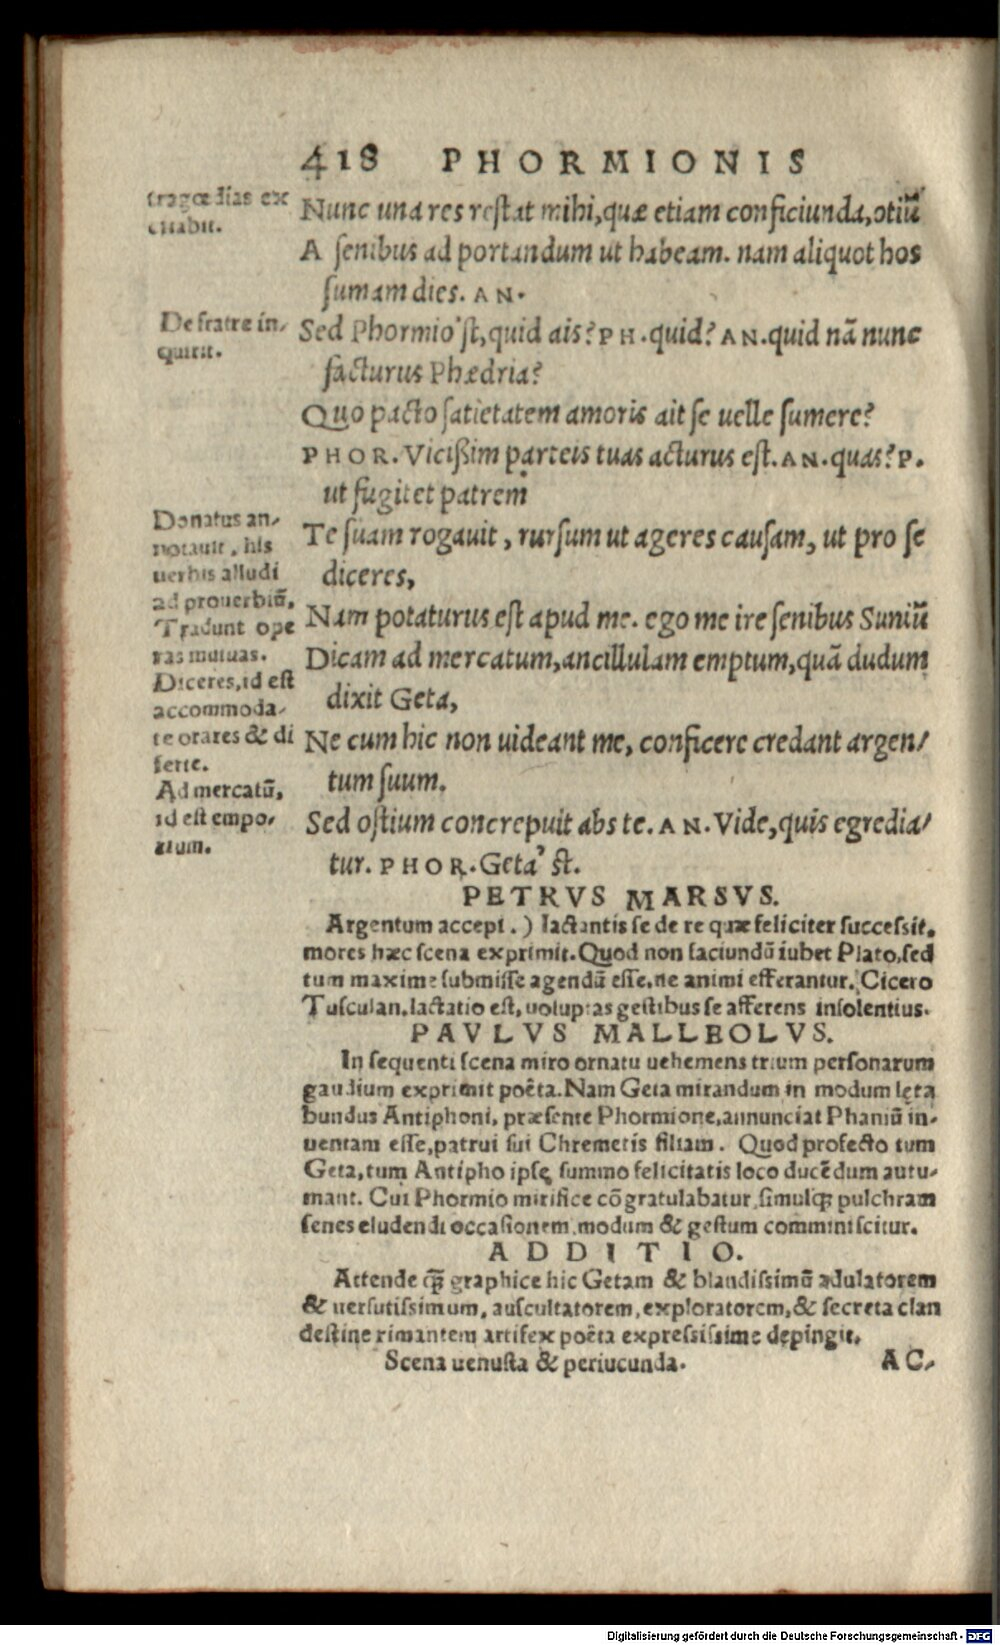 418 PHORMIONIS
tragœdias ex
citabit.
Nunc una res restat mihi, quæ etiam conficiunda, otiū
A senibus ad portandum ut habeam. nam aliquot hos
sumam dies. AN.
De fratre in-
quirit.
Sed Phormio'st, quid ais? PH. quid? AN. quid nā nunc
facturus Phædria?
Quo pacto satietatem amoris ait se uelle sumere?
PHOR. Vicißim parteis tuas acturus est. AN. quas? P.
ut fugitet patrem
Donatus an-
notauit, his
uerbis alludi
ad prouerbiū,
Tradunt ope
ras mutuas.
Diceres, id est
accommoda-
te orares & di
serte.
Ad mercatū,
id est empo-
rium.
Te suam rogauit, rursum ut ageres causam, ut pro se
diceres,
Nam potaturus est apud me. ego me ire senibus Suniū
Dicam ad mercatum, ancillulam emptum, quā dudum
dixit Geta,
Ne cum hic non uideant me, conficere credant argen/
tum suum.
Sed ostium concrepuit abs te. AN. Vide, quis egredia/
tur. PHOR. Geta'st.
PETRVS MARSVS.
Argentum accepi.) Iactantis se de re quæ feliciter successit.
mores hæc scena exprimit. Quod non faciundū iubet Plato, sed
tum maxime submisse agendū esse, ne animi efferantur. Cicero
Tusculan. Iactatio est, uoluptas gestibus se afferens insolentius.
PAVLVS MALLEOLVS.
In sequenti scena miro ornatu uehemens trium personarum
gaudium exprimit poëta. Nam Geta mirandum in modum lęta
bundus Antiphoni, præsente Phormione, annunciat Phaniū in-
uentam esse, patrui sui Chremetis filiam. Quod profecto tum
Geta, tum Antipho ipse, summo felicitatis loco ducēdum autu-
mant. Cui Phormio mirifice cōgratulabatur, simulq; pulchram
senes eludendi occasionem, modum & gestum comminiscitur.
ADDITIO.
Attende q̄ graphice hic Getam & blandissimū adulatorem
& uersutissimum, auscultatorem, exploratorem, & secreta clan
destine rimantem artifex poëta expressissime depingit.
Scena uenusta & periucunda. AC-
Digitalisierung gefördert durch die Deutsche Forschungsgemeinschaft - DFG